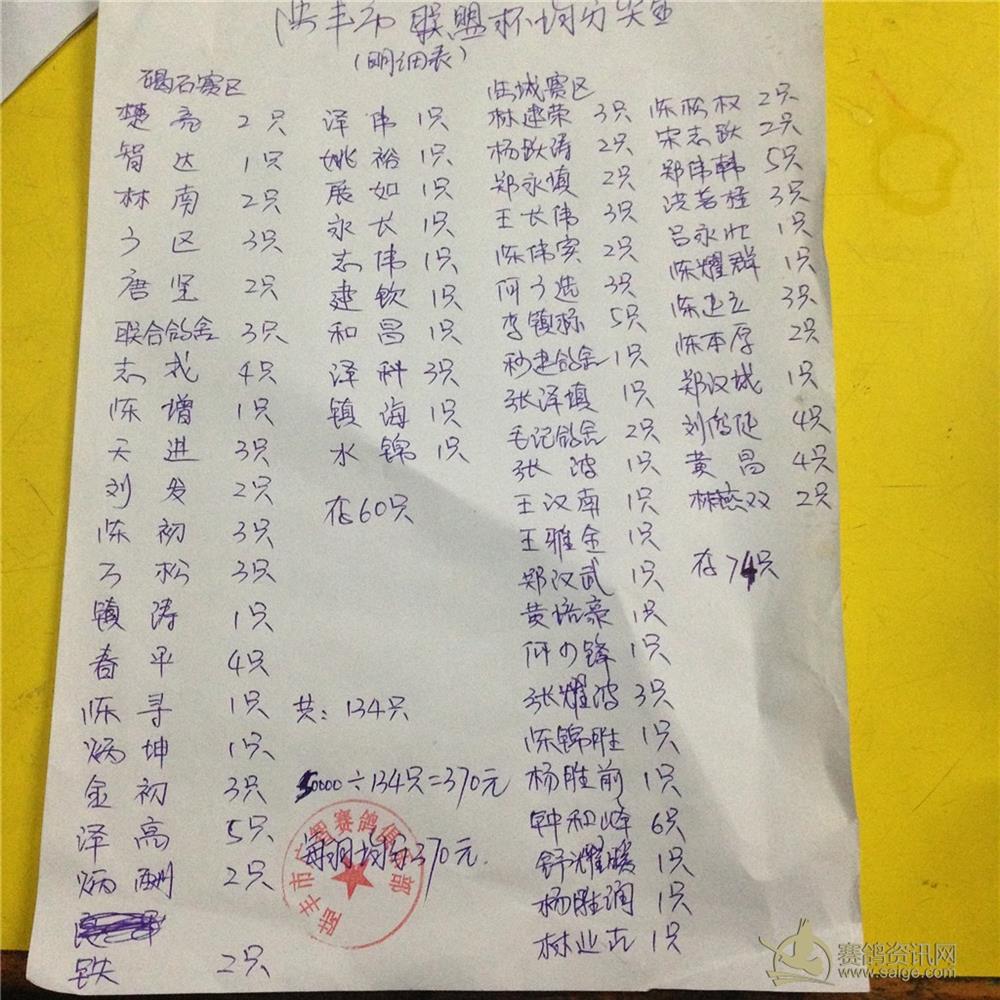 陆丰市联盟杯均分奖金
(明细表)
碣石赛区
楚亮 2只
智达 1只
林南 2只
方区 3只
唐坚 2只
联合鸽舍 3只
志武 4只
陈增 1只
天进 3只
刘发 2只
陈初 3只
松 3只
镇涛 1只
春平 4只
陈寻 1只
炳坤 1只
金初 3只
泽高 5只
炳 2只
铁 2只
泽伟 1只
姚裕 1只
展如 1只
永长 1只
志伟 1只
建钦 1只
和昌 1只
泽科 3只
镇海 1只
水锦 1只
存60只
共:134只
50000÷134只=370元
每羽均分370元.
陆丰市 智赛鸽俱乐部
城赛区
林建荣 3只
杨跃涛 2只
郑永填 2只
王长伟 3只
陈伟实 2只
何少选 3只
李镇标 5只
秒建鸽舍 1只
张泽填 1只
毛记鸽舍 2只
张波 1只
王汉南 1只
王雅金 1只
郑汉武 1只
黄培豪 1只
何少锋 1只
张耀波 3只
陈锦胜 1只
杨胜前 1只
钟和峰 6只
舒耀暖 1只
杨胜润 1只
林业吉 1只
陈松权 2只
宋志跃 2只
郑伟韩 5只
洪若桂 3只
吕永壮 1只
陈耀群 1只
陈业立 3只
陈本厚 2只
郑汉城 1只
刘俊延 4只
黄昌 4只
林燕双 2只
存74只
赛鸽资讯网
www.saige.com